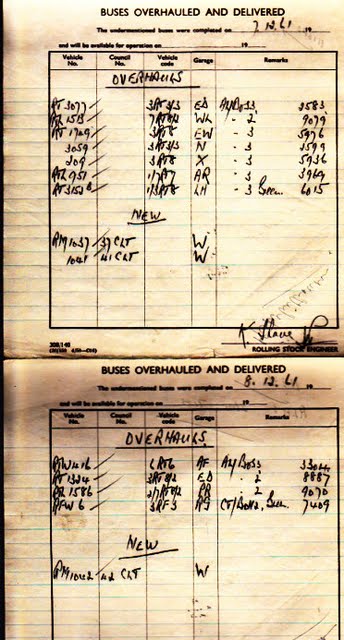 BUSES OVERHAULED AND DELIVERED
The undermentioned buses were completed on 7.12.61 19
and will be available for operation on 19
Vehicle No. Council No. Vehicle code Garage Remarks
OVERHAULS
RT 3077 3RT3/3 ED AV/BOSS 2583
RTL 1513 7RT8/2 WL - 2 9079
RT 1749 3RT8 EW - 3 5976
3059 3RT3/3 N - 3
209 3RT8 X - 3 5936
RTL 951 1/7RT7 AR - 3 3969
RT 3153 1/3RT8 LH - 3 Green 6015
NEW
RM 1037 37 CLT W
1041 41 CLT W
ROLLING STOCK ENGINEER
BUSES OVERHAULED AND DELIVERED
The undermentioned buses were completed on 8.12.61 19
and will be available for operation on 19
Vehicle No. Council No. Vehicle code Garage Remarks
OVERHAULS
RTW 416 6RT6 AF AV/BOSS
RT 1324 3RT8/2 ED - 2 8887
RTL 1586 2/7RT8/2 - 2 9070
RFW 6 3RF3 7409
NEW
RM 1042 42 CLT W